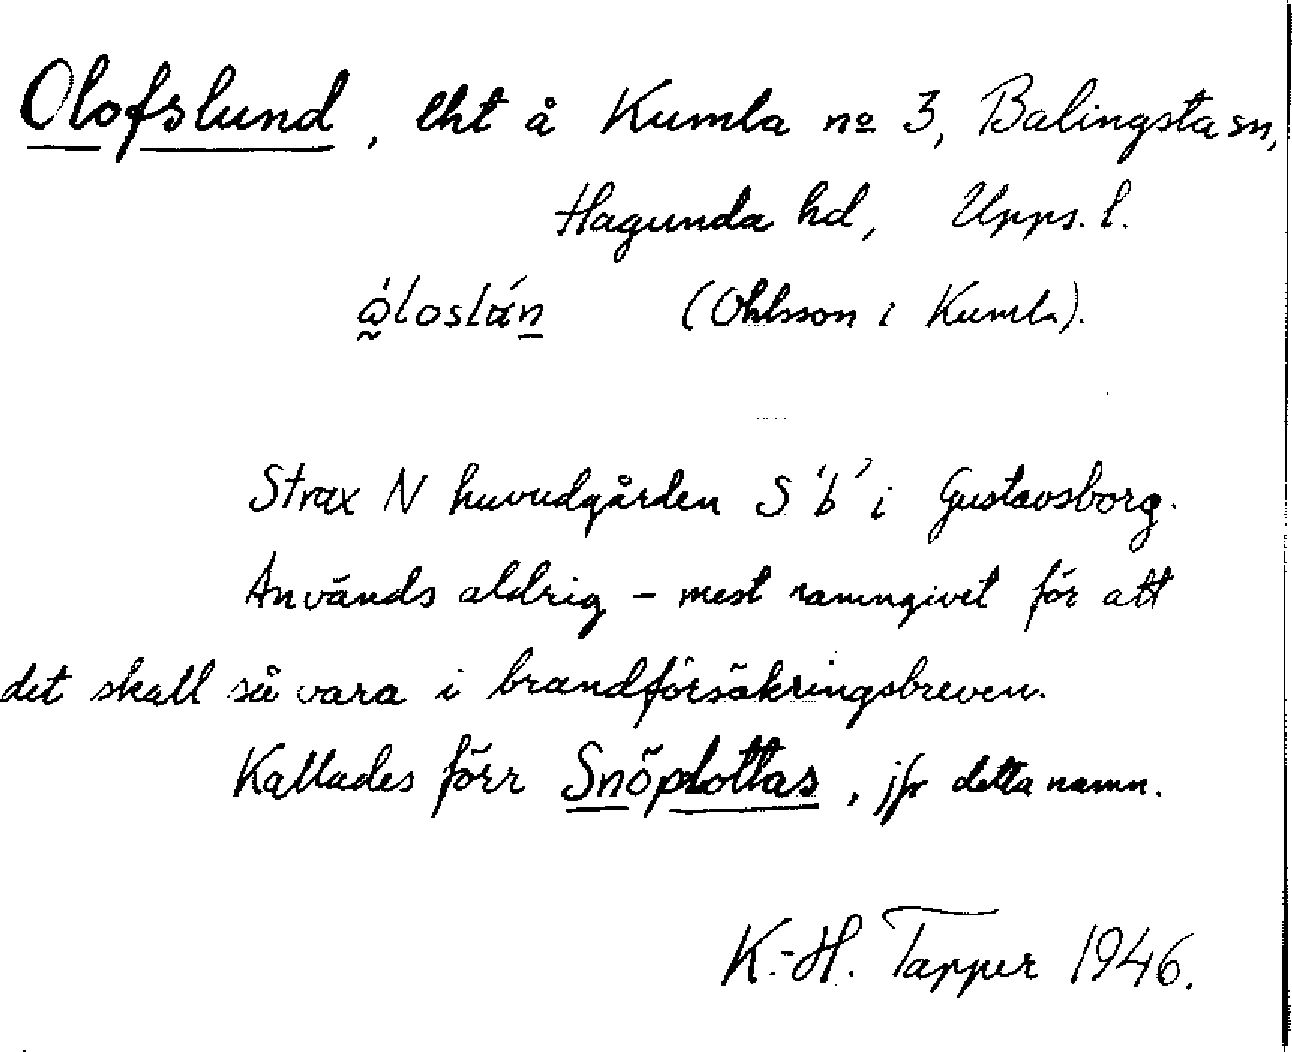 Olofslund, lht å Kumla no 3, Balingsta sn,
Hagunda hd, Upps. l.
(Ohlsson i Kumla).
Strax N huvudgården S 'b' i Gustavsborg.
Används aldrig – mest namngivet för att
det skall så vara i brandförsäkringsbreven.
Kallades förr Snöplottas, jfr detta namn.
K.-H. Tapper 1946.